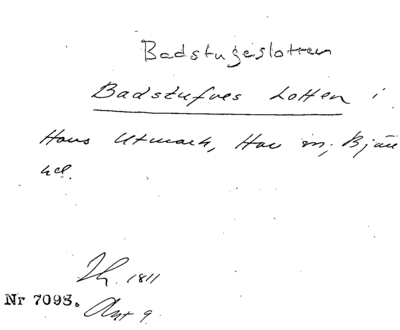 Badstugeslotten
Badstufves Lotten i
Hans Utmark, Hov sn, Bjäre
hd.
Lh. 1811
Nr 7098. Akt 9.